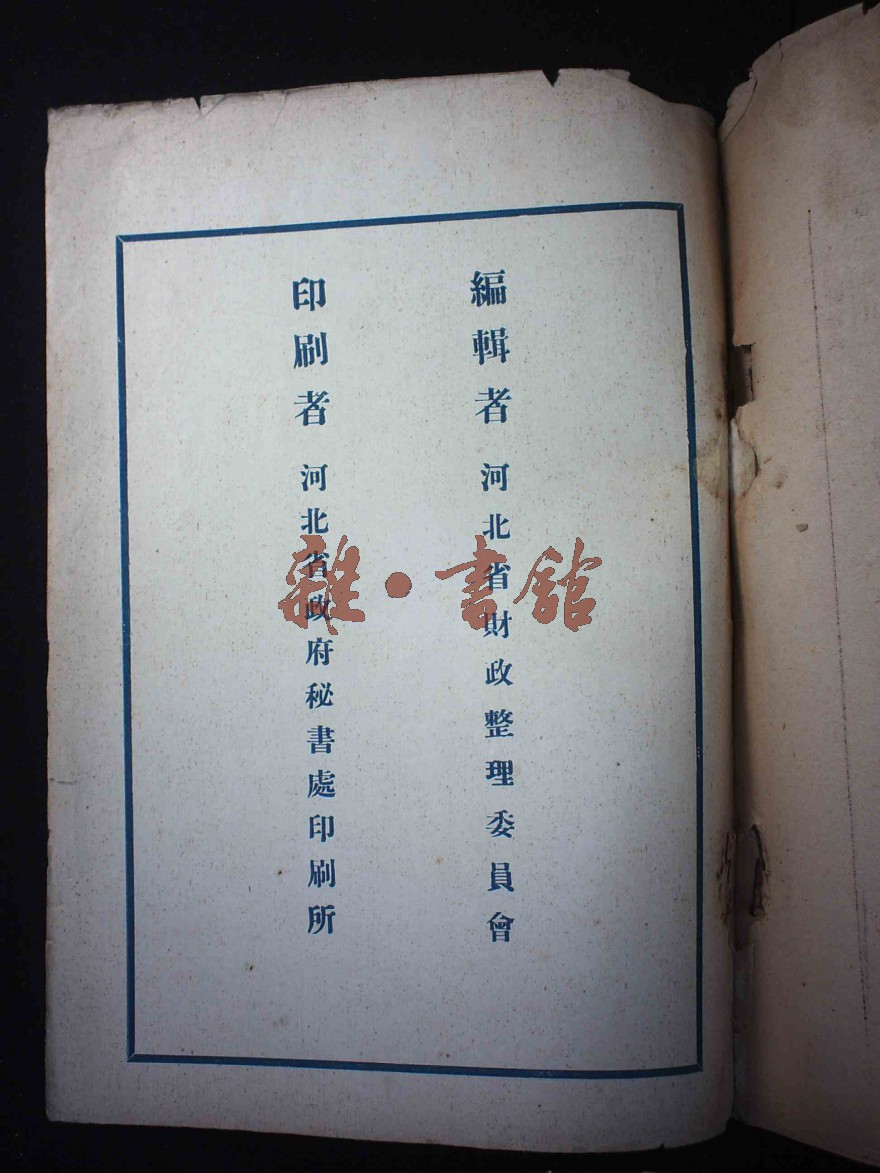 編輯者 河北省財政整理委員會
印刷者 河北省政府秘書處印刷所
雜·書館